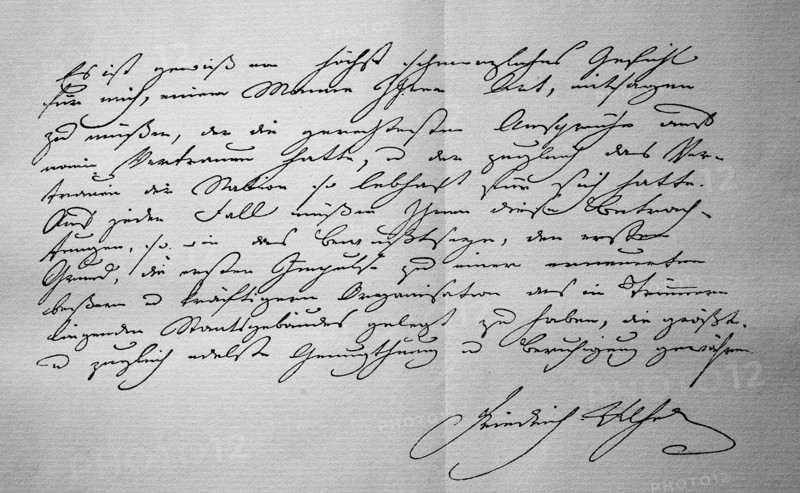 Es ist gewiß ein höchst schmerzliches Gefühl
für mich, einem Manne Ihrer Art, entsagen
zu müßen, der die gerechtesten Ansprüche auf
mein Vertrauen hatte, u der zugleich das Ver-
trauen der Nation so lebhaft für sich hatte.
Auf jeden Fall müßen Ihnen diese Betrach-
tungen, so wie das Bewußtseyn, den ersten
Grund, die ersten Impulse zu einer erneuerten
beßeren u kräftigeren Organisation des in Trümmern
liegenden Staatsgebäudes gelegt zu haben, die größte
u zugleich edelste Genugthuung u Beruhigung gewähren.
Friedrich Wilhelm
PHOTO12